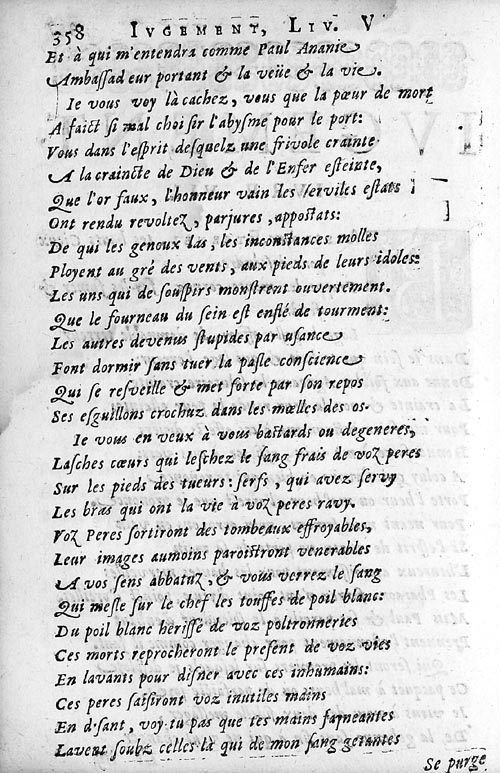 358 IVGEMENT, LIV. V
Et à qui m'entendra comme Paul Ananie
Ambaſſad eur portant & la veüe & la vie.
Ie vous voy là cachez, vous que la pœur de mort
A faict ſi mal choi ſir l'abyſme pour le port:
Vous dans l'eſprit deſquelz une frivole crainte
A la craincte de Dieu & de l'Enfer eſteinte,
Que l'or faux, l'honneur vain les ſerviles eſtats
Ont rendu revoltez, parjures, appoſtats:
De qui les genoux las, les inconſtances molles
Ployent au gré des vents, aux pieds de leurs idoles:
Les uns qui de ſouſpirs monſtrent ouvertement.
Que le fourneau du ſein est enflé de tourment:
Les autres devenus ſtupides par uſance
Font dormir ſans tuer la paſle conſcience
Qui ſe reſveille & met forte par ſon repos
Ses eſguillons crochuz dans les mœlles des os.
Ie vous en veux à vous baſtards ou degeneres,
Laſches cœurs qui leſchez le ſang frais de voz peres
Sur les pieds des tueurs: ſerfs, qui avez ſervy
Les bras qui ont la vie à voz peres ravy.
Voz Peres ſortiront des tombeaux effroyables,
Leur images aumoins paroiſtront venerables
A vos ſens abbatuz, & vous verrez le ſang
Qui meſle ſur le chef les touffes de poil blanc:
Du poil blanc heriſſé de voz poltronneries
Ces morts reprocheront le preſent de voz vies
En lavants pour diſner avec ces inhumains:
Ces peres ſaiſiront voz inutiles mains
En d.ſant, voy tu pas que tes mains fayneantes
Lavent ſoubz celles là qui de mon ſang gerantes
Se purge